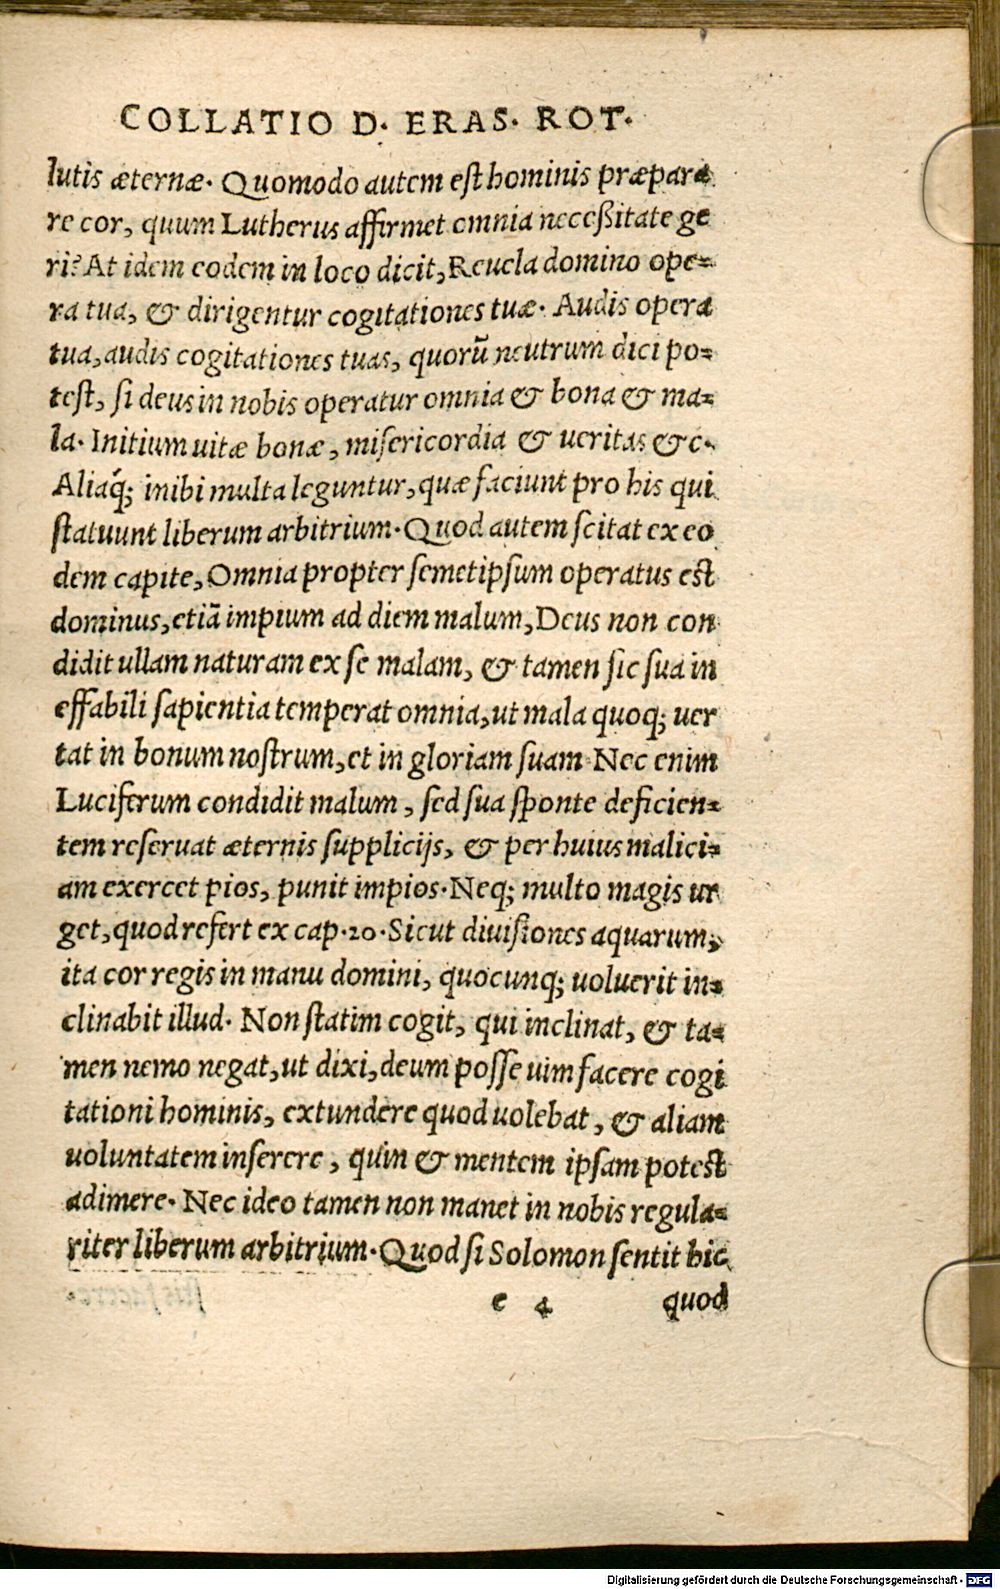 COLLATIO D. ERAS. ROT.
lutis æternæ. Quomodo autem est hominis præpara
re cor, quum Lutherus affirmet omnia neceßitate ge
ri? At idem eodem in loco dicit, Reuela domino ope-
ra tua, & dirigentur cogitationes tuæ. Audis opera
tua, audis cogitationes tuas, quorũ neutrum dici po-
test, si deus in nobis operatur omnia & bona & ma-
la. Initium uitæ bonæ, misericordia & ueritas &c.
Aliaq́; inibi multa leguntur, quæ faciunt pro his qui
statuunt liberum arbitrium. Quod autem scitat ex eo
dem capite, Omnia propter semetipsum operatus est
dominus, etiã impium ad diem malum, Deus non con
didit ullam naturam ex se malam, & tamen sic sua in
effabili sapientia temperat omnia, ut mala quoq; uer
tat in bonum nostrum, et in gloriam suam. Nec enim
Luciferum condidit malum, sed sua sponte deficien-
tem reseruat æternis supplicijs, & per huius malici-
am exercet pios, punit impios. Neq; multo magis ur
get, quod refert ex cap. 20. Sicut diuisiones aquarum,
ita cor regis in manu domini, quocunq; uoluerit in-
clinabit illud. Non statim cogit, qui inclinat, & ta-
men nemo negat, ut dixi, deum posse uim facere cogi
tationi hominis, extundere quod uolebat, & aliam
uoluntatem inserere, quin & mentem ipsam potest
adimere. Nec ideo tamen non manet in nobis regula-
riter liberum arbitrium. Quod si Solomon sentit hic
e 4 quod
Digitalisierung gefördert durch die Deutsche Forschungsgemeinschaft - DFG